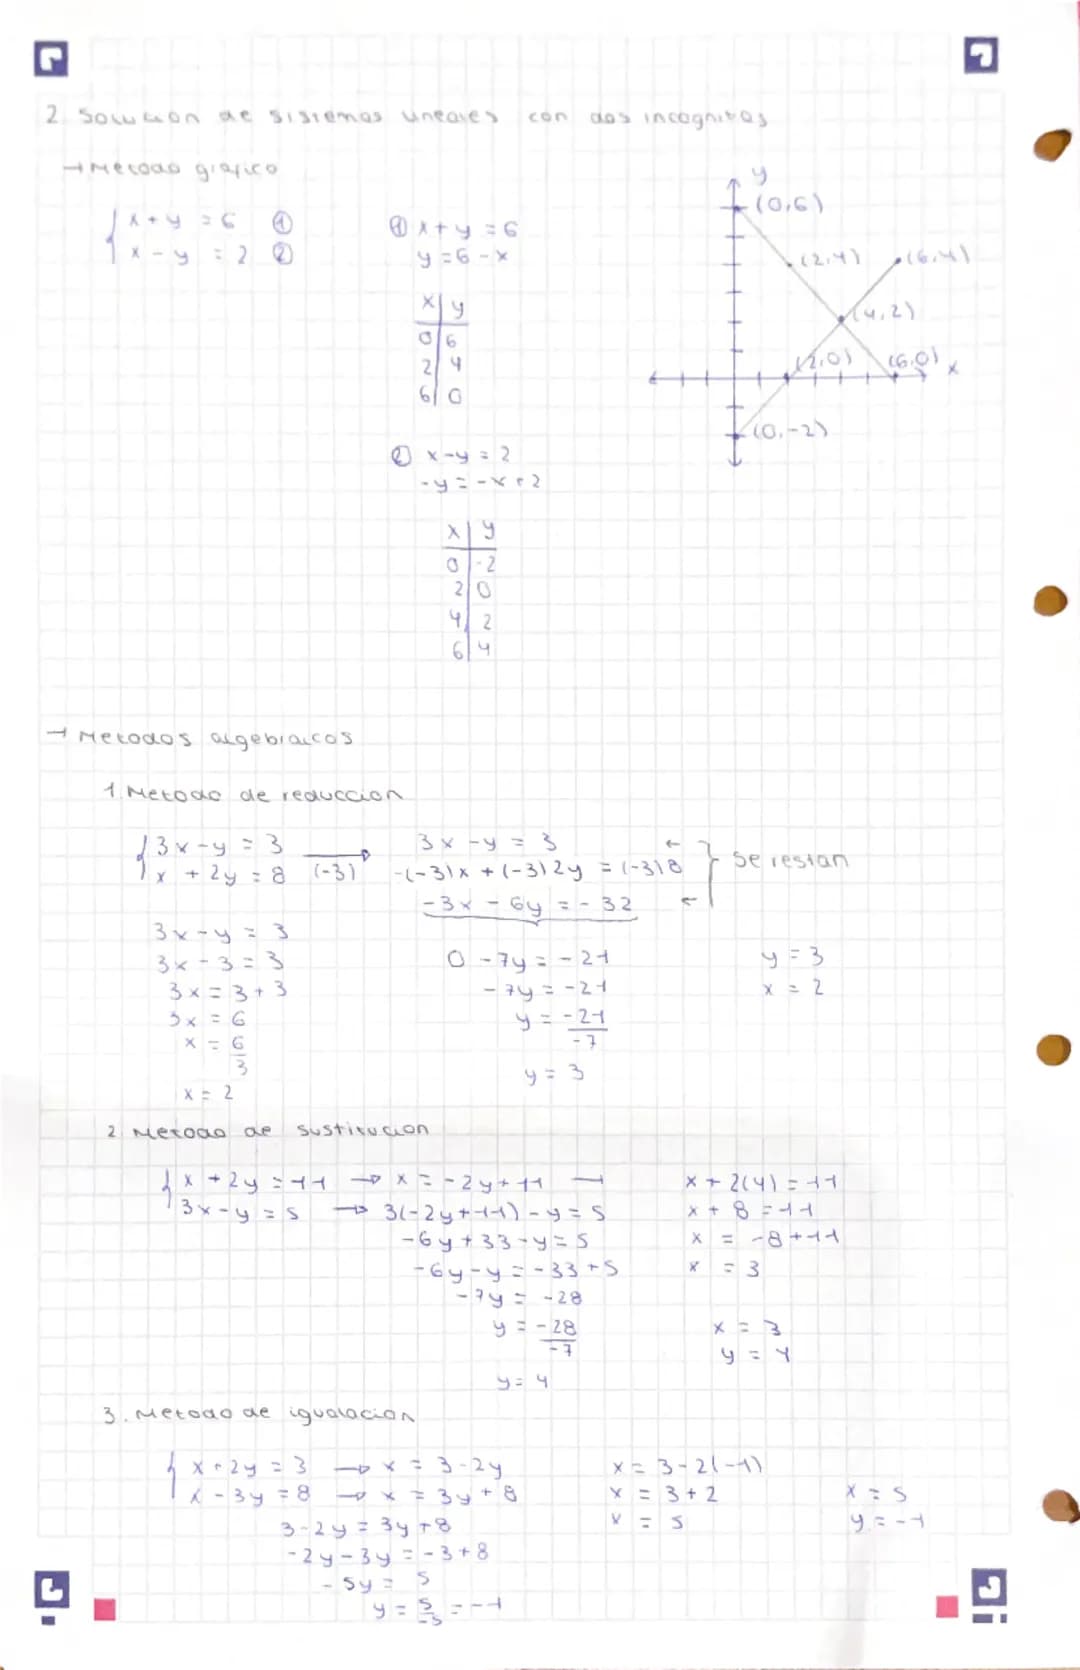 2. Solución de sistemas lineales con dos incognitas
→ Metodo grafico
{ x + y = 6 ①
x - y = 2 ②
① x + y = 6
y = 6 - x
x | y
0 | 6
2 | 4
6 | 0
② x - y = 2
-y = -x + 2
x | y
0 | -2
2 | 0
4 | 2
6 | 4
y
(0,6)
(2,4)
(6,4)
(4,2)
(2,0)
(6,0)
x
(0,-2)
→ Metodos algebraicos
1. Metodo de reduccion
{ 3x - y = 3
x + 2y = 8 (-3)
3x - y = 3
-(-3)x + (-3)2y = (-3)8
-3x - 6y = -32
} se restan
3x - y = 3
3x - 3 = 3
3x = 3 + 3
3x = 6
x = 6/3
x = 2
0 - 7y = -21
-7y = -21
y = -21/-7
y = 3
y = 3
x = 2
2. Metodo de sustitucion
{ x + 2y = 11 → x = -2y + 11
3x - y = 5 → 3(-2y + 11) - y = 5
-6y + 33 - y = 5
-6y - y = -33 + 5
-7y = -28
y = -28/-7
y = 4
x + 2(4) = 11
x + 8 = 11
x = -8 + 11
x = 3
x = 3
y = 4
3. Metodo de igualacion
{ x + 2y = 3 → x = 3 - 2y
x - 3y = 8 → x = 3y + 8
3 - 2y = 3y + 8
-2y - 3y = -3 + 8
-5y = 5
y = 5/-5 = -1
x = 3 - 2(-1)
x = 3 + 2
x = 5
x = 5
y = -1